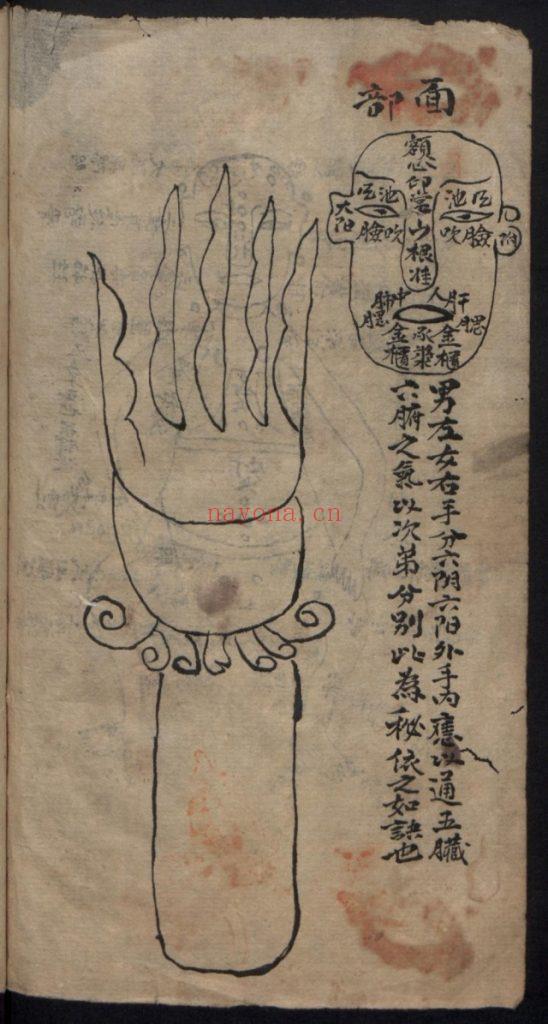 面部
額心印堂山根准
池
池
大阳
阳
臉吹
吹臉
肺中人肝
腮
腮
金櫃
承漿
金櫃
男左女右手分六阴六阳外手内應以通五臟
六腑之氣以次第分别此為秘依之如訣也
nayona.cn